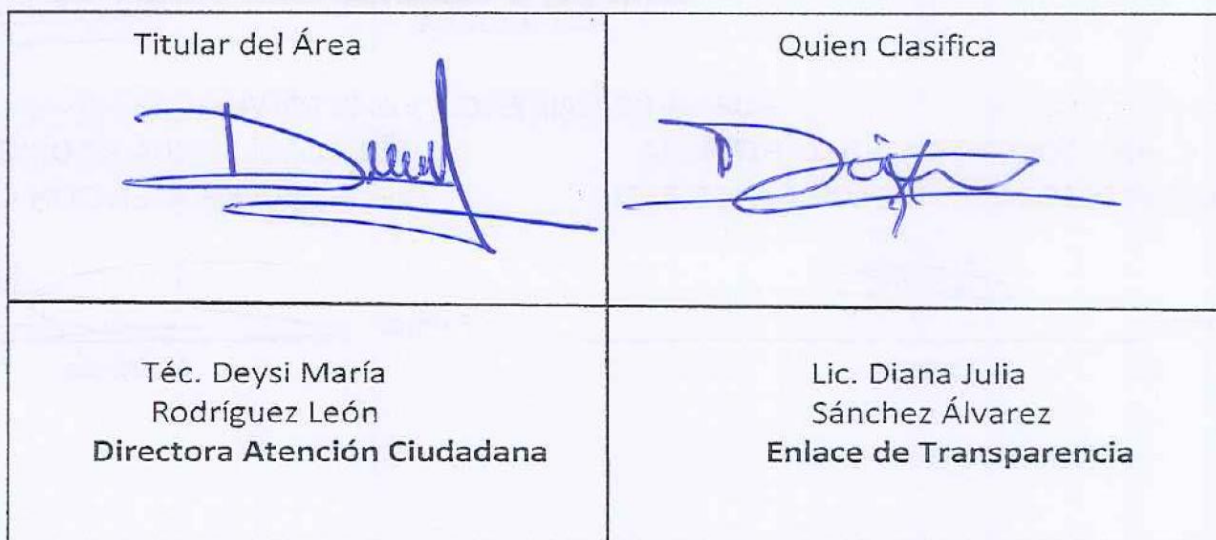 Titular del Área
Quien Clasifica
Téc. Deysi María
Rodríguez León
Directora Atención Ciudadana
Lic. Diana Julia
Sánchez Álvarez
Enlace de Transparencia